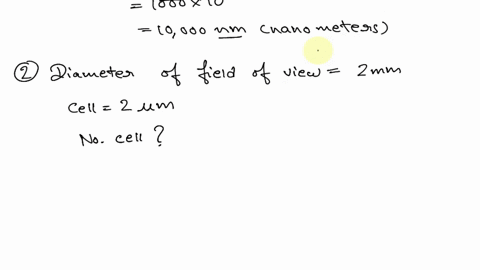 = 1000 × 10
= 10,000 nm (nanometers)
② Diameter of field of view = 2mm
cell = 2 um
No. cell ?